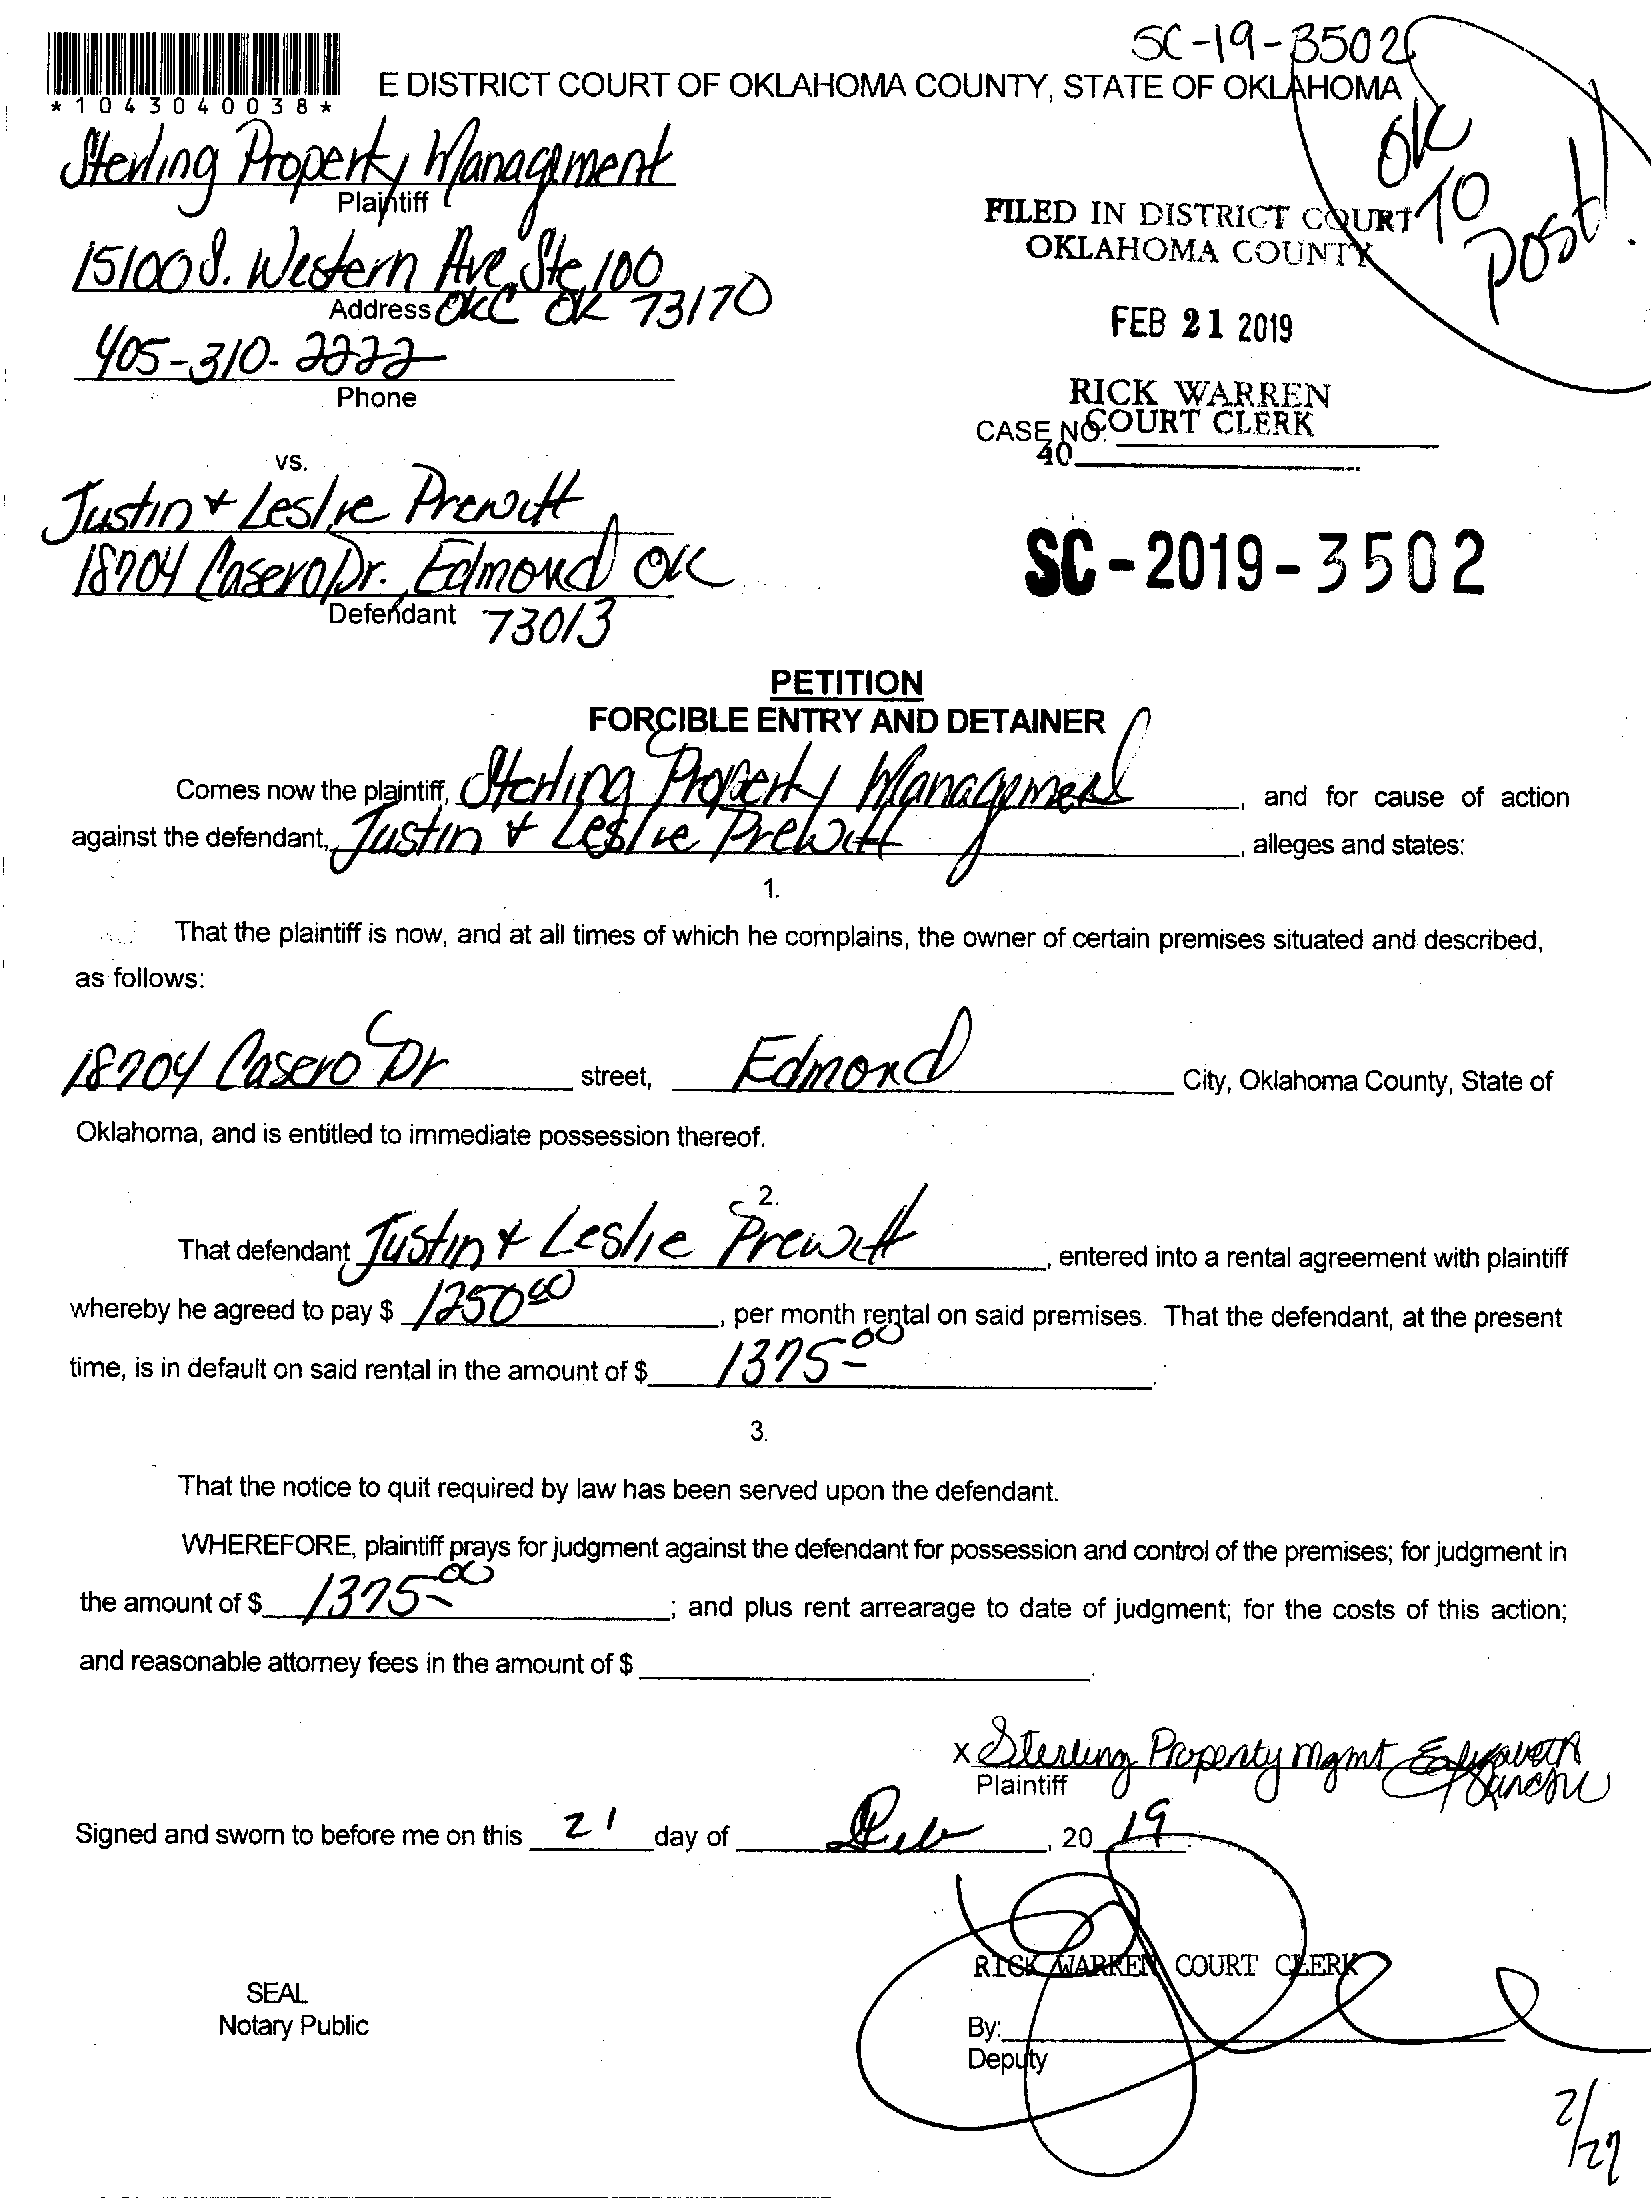 SC-19-3502
E DISTRICT COURT OF OKLAHOMA COUNTY, STATE OF OKLAHOMA
*1043040038*
OK
TO
Post!
Sterling Property Management
Plaintiff
FILED IN DISTRICT COURT
OKLAHOMA COUNTY
15100 S. Western Ave, Ste 100
Address OKC OK 73170
FEB 21 2019
405-310-2222
Phone
RICK WARREN
COURT CLERK
CASE NO.
40
vs.
Justin + Leslie Prewitt
18704 Casero Dr. Edmond OK
Defendant 73013
SC-2019-3502
PETITION
FORCIBLE ENTRY AND DETAINER
Comes now the plaintiff, Sterling Property Management, and for cause of action
against the defendant, Justin + Leslie Prewitt, alleges and states:
1.
That the plaintiff is now, and at all times of which he complains, the owner of certain premises situated and described,
as follows:
18704 Casero Dr street, Edmond City, Oklahoma County, State of
Oklahoma, and is entitled to immediate possession thereof.
2.
That defendant Justin + Leslie Prewitt, entered into a rental agreement with plaintiff
whereby he agreed to pay $ 1250 00, per month rental on said premises. That the defendant, at the present
time, is in default on said rental in the amount of $ 1375-00.
3.
That the notice to quit required by law has been served upon the defendant.
WHEREFORE, plaintiff prays for judgment against the defendant for possession and control of the premises; for judgment in
the amount of $ 1375-00; and plus rent arrearage to date of judgment; for the costs of this action;
and reasonable attorney fees in the amount of $
x Sterling Property Mgmt Elizabeth
Plaintiff
Signed and sworn to before me on this 21 day of Feb, 20 19.
RICK WARREN COURT CLERK
SEAL
Notary Public
By:
Deputy
2/27